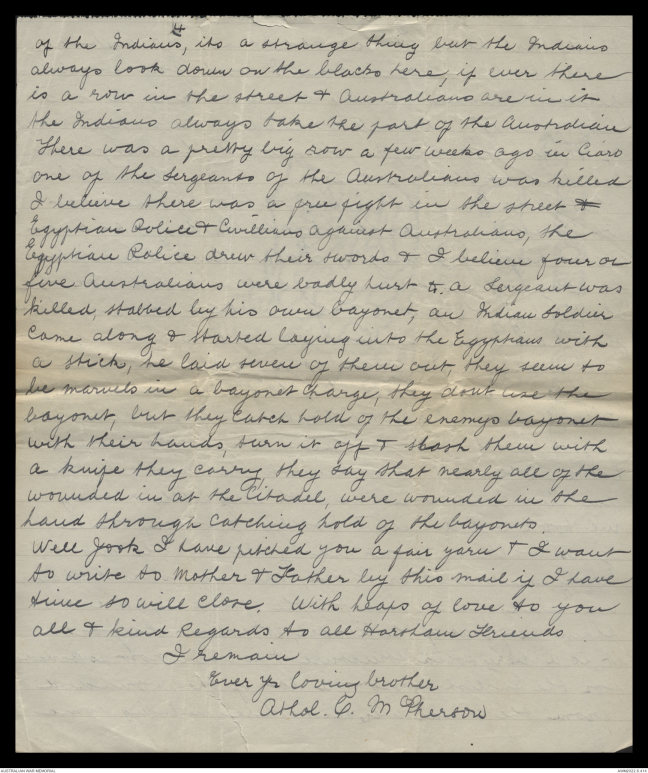 4
of the Indians, its a strange thing but the Indians
always look down on the blacks here, if ever there
is a row in the street & Australians are in it
the Indians always take the part of the Australian
There was a pretty big row a few weeks ago in Ciaro
one of the Sergeants of the Australians was killed
I believe there was a free fight in the street &
Egyptian Police & Civillians against Australians, the
Egyptian Police drew their swords & I believe four or
five Australians were badly hurt & a Sergeant was
killed, stabbed by his own bayonet, an Indian Soldier
came along & started laying into the Egyptians with
a stick, he laid seven of them out, they seem to
be marvels in a bayonet charge, they dont use the
bayonet, but they catch hold of the enemys bayonet
with their hands, turn it off & slash them with
a knife they carry, they say that nearly all of the
wounded in at the Citadel, were wounded in the
hand through catching hold of the bayonets.
Well Jook I have pitched you a fair yarn & I want
to write to Mother & Father by this mail if I have
time so will close. With heaps of love to you
all & kind Regards to all Horsham Friends
I remain
Ever Yr loving brother
Athol. C. McPherson
AUSTRALIAN WAR MEMORIAL